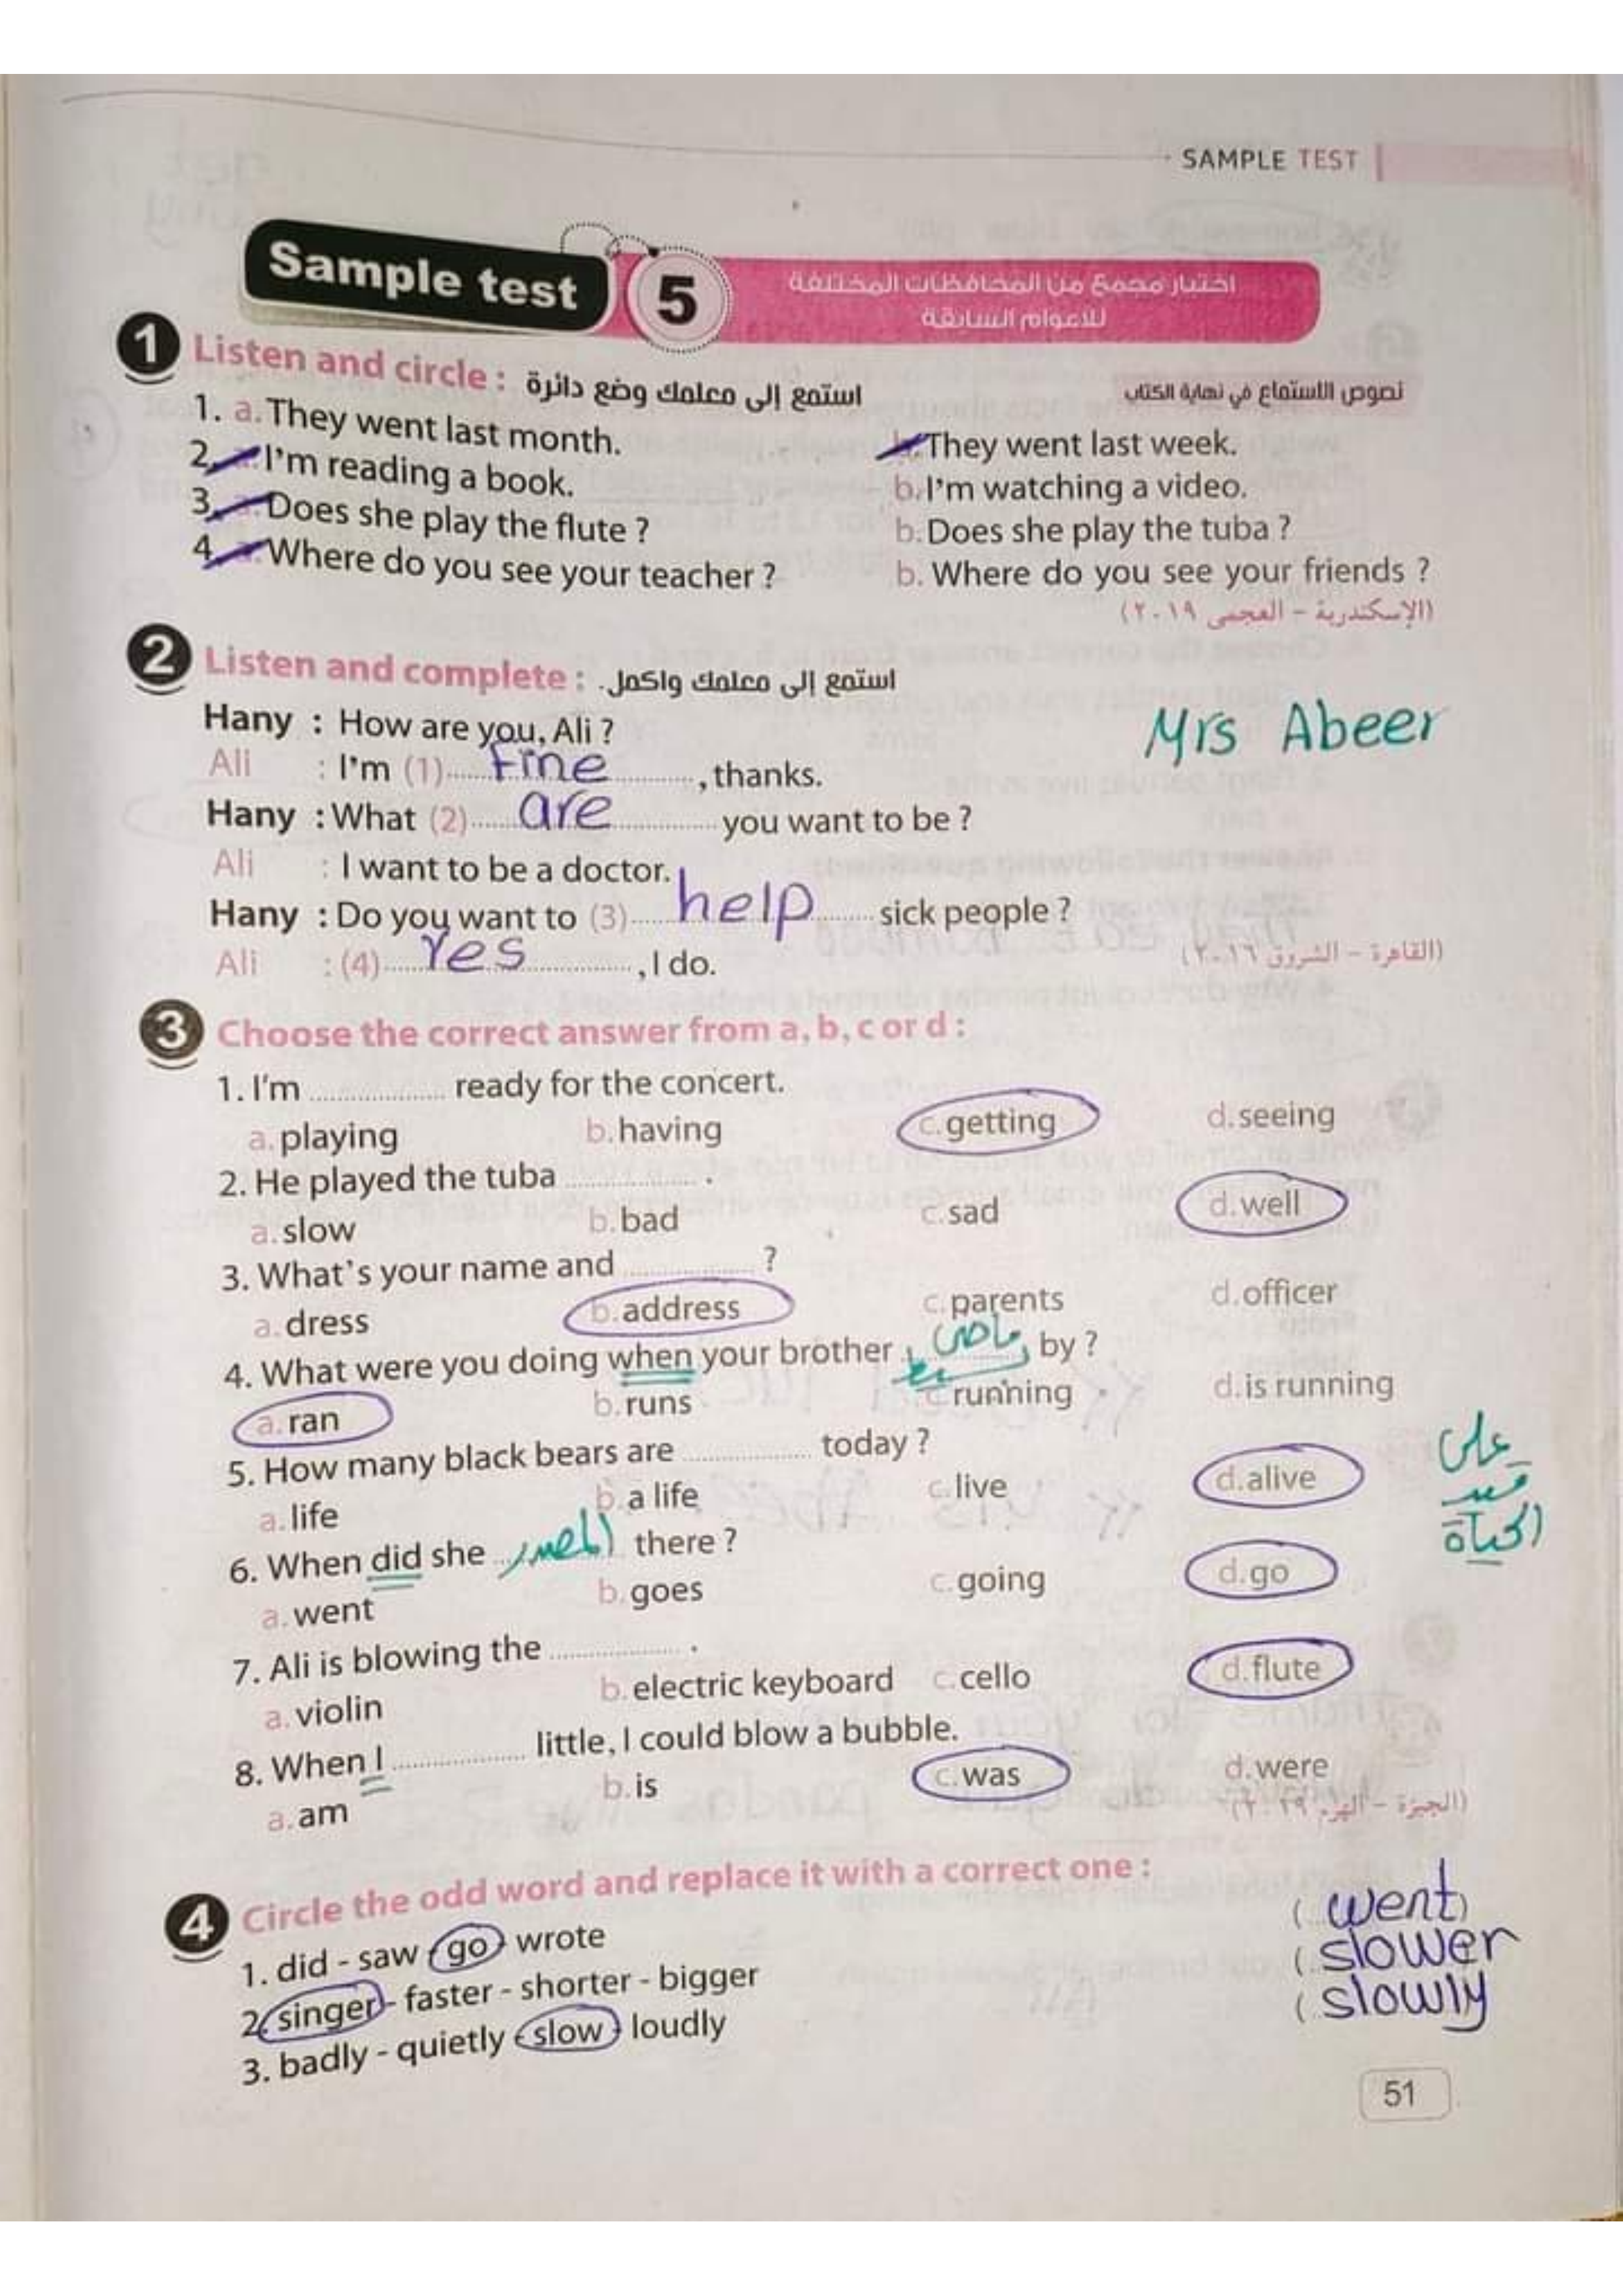 SAMPLE TEST
Sample test 5
اختبار مجمع من المحافظات المختلفة
للاعوام السابقة
1 Listen and circle : استمع إلى معلمك وضع دائرة
نصوص الاستماع في نهاية الكتاب
1. a. They went last month. They went last week.
2. I'm reading a book. b. I'm watching a video.
3. Does she play the flute ? b. Does she play the tuba ?
4. Where do you see your teacher ? b. Where do you see your friends ?
(الإسكندرية – العجمى ٢٠١٩)
2 Listen and complete : استمع إلى معلمك واكمل.
Hany : How are you, Ali ?
Mrs Abeer
Ali : I'm (1) Fine , thanks.
Hany : What (2) are you want to be ?
Ali : I want to be a doctor.
Hany : Do you want to (3) help sick people ?
Ali : (4) Yes , I do.
(القاهرة – الشروق ٢٠١٦)
3 Choose the correct answer from a, b, c or d :
1. I'm .................. ready for the concert.
a. playing b. having c. getting d. seeing
2. He played the tuba .................. .
a. slow b. bad c. sad d. well
3. What's your name and .................. ?
a. dress b. address c. parents d. officer
4. What were you doing when your brother ماضى بسيط by ?
a. ran b. runs c. running d. is running
5. How many black bears are .................. today ?
a. life b. a life c. live d. alive
على
قيد
الحياة
6. When did she المصدر there ?
a. went b. goes c. going d. go
7. Ali is blowing the .................. .
a. violin b. electric keyboard c. cello d. flute
8. When I .................. little, I could blow a bubble.
a. am b. is c. was d. were
(الجيزة – الهرم ٢٠١٩)
4 Circle the odd word and replace it with a correct one :
1. did - saw - go - wrote ( went )
2. singer - faster - shorter - bigger ( slower
3. badly - quietly - slow - loudly ( slowly
51